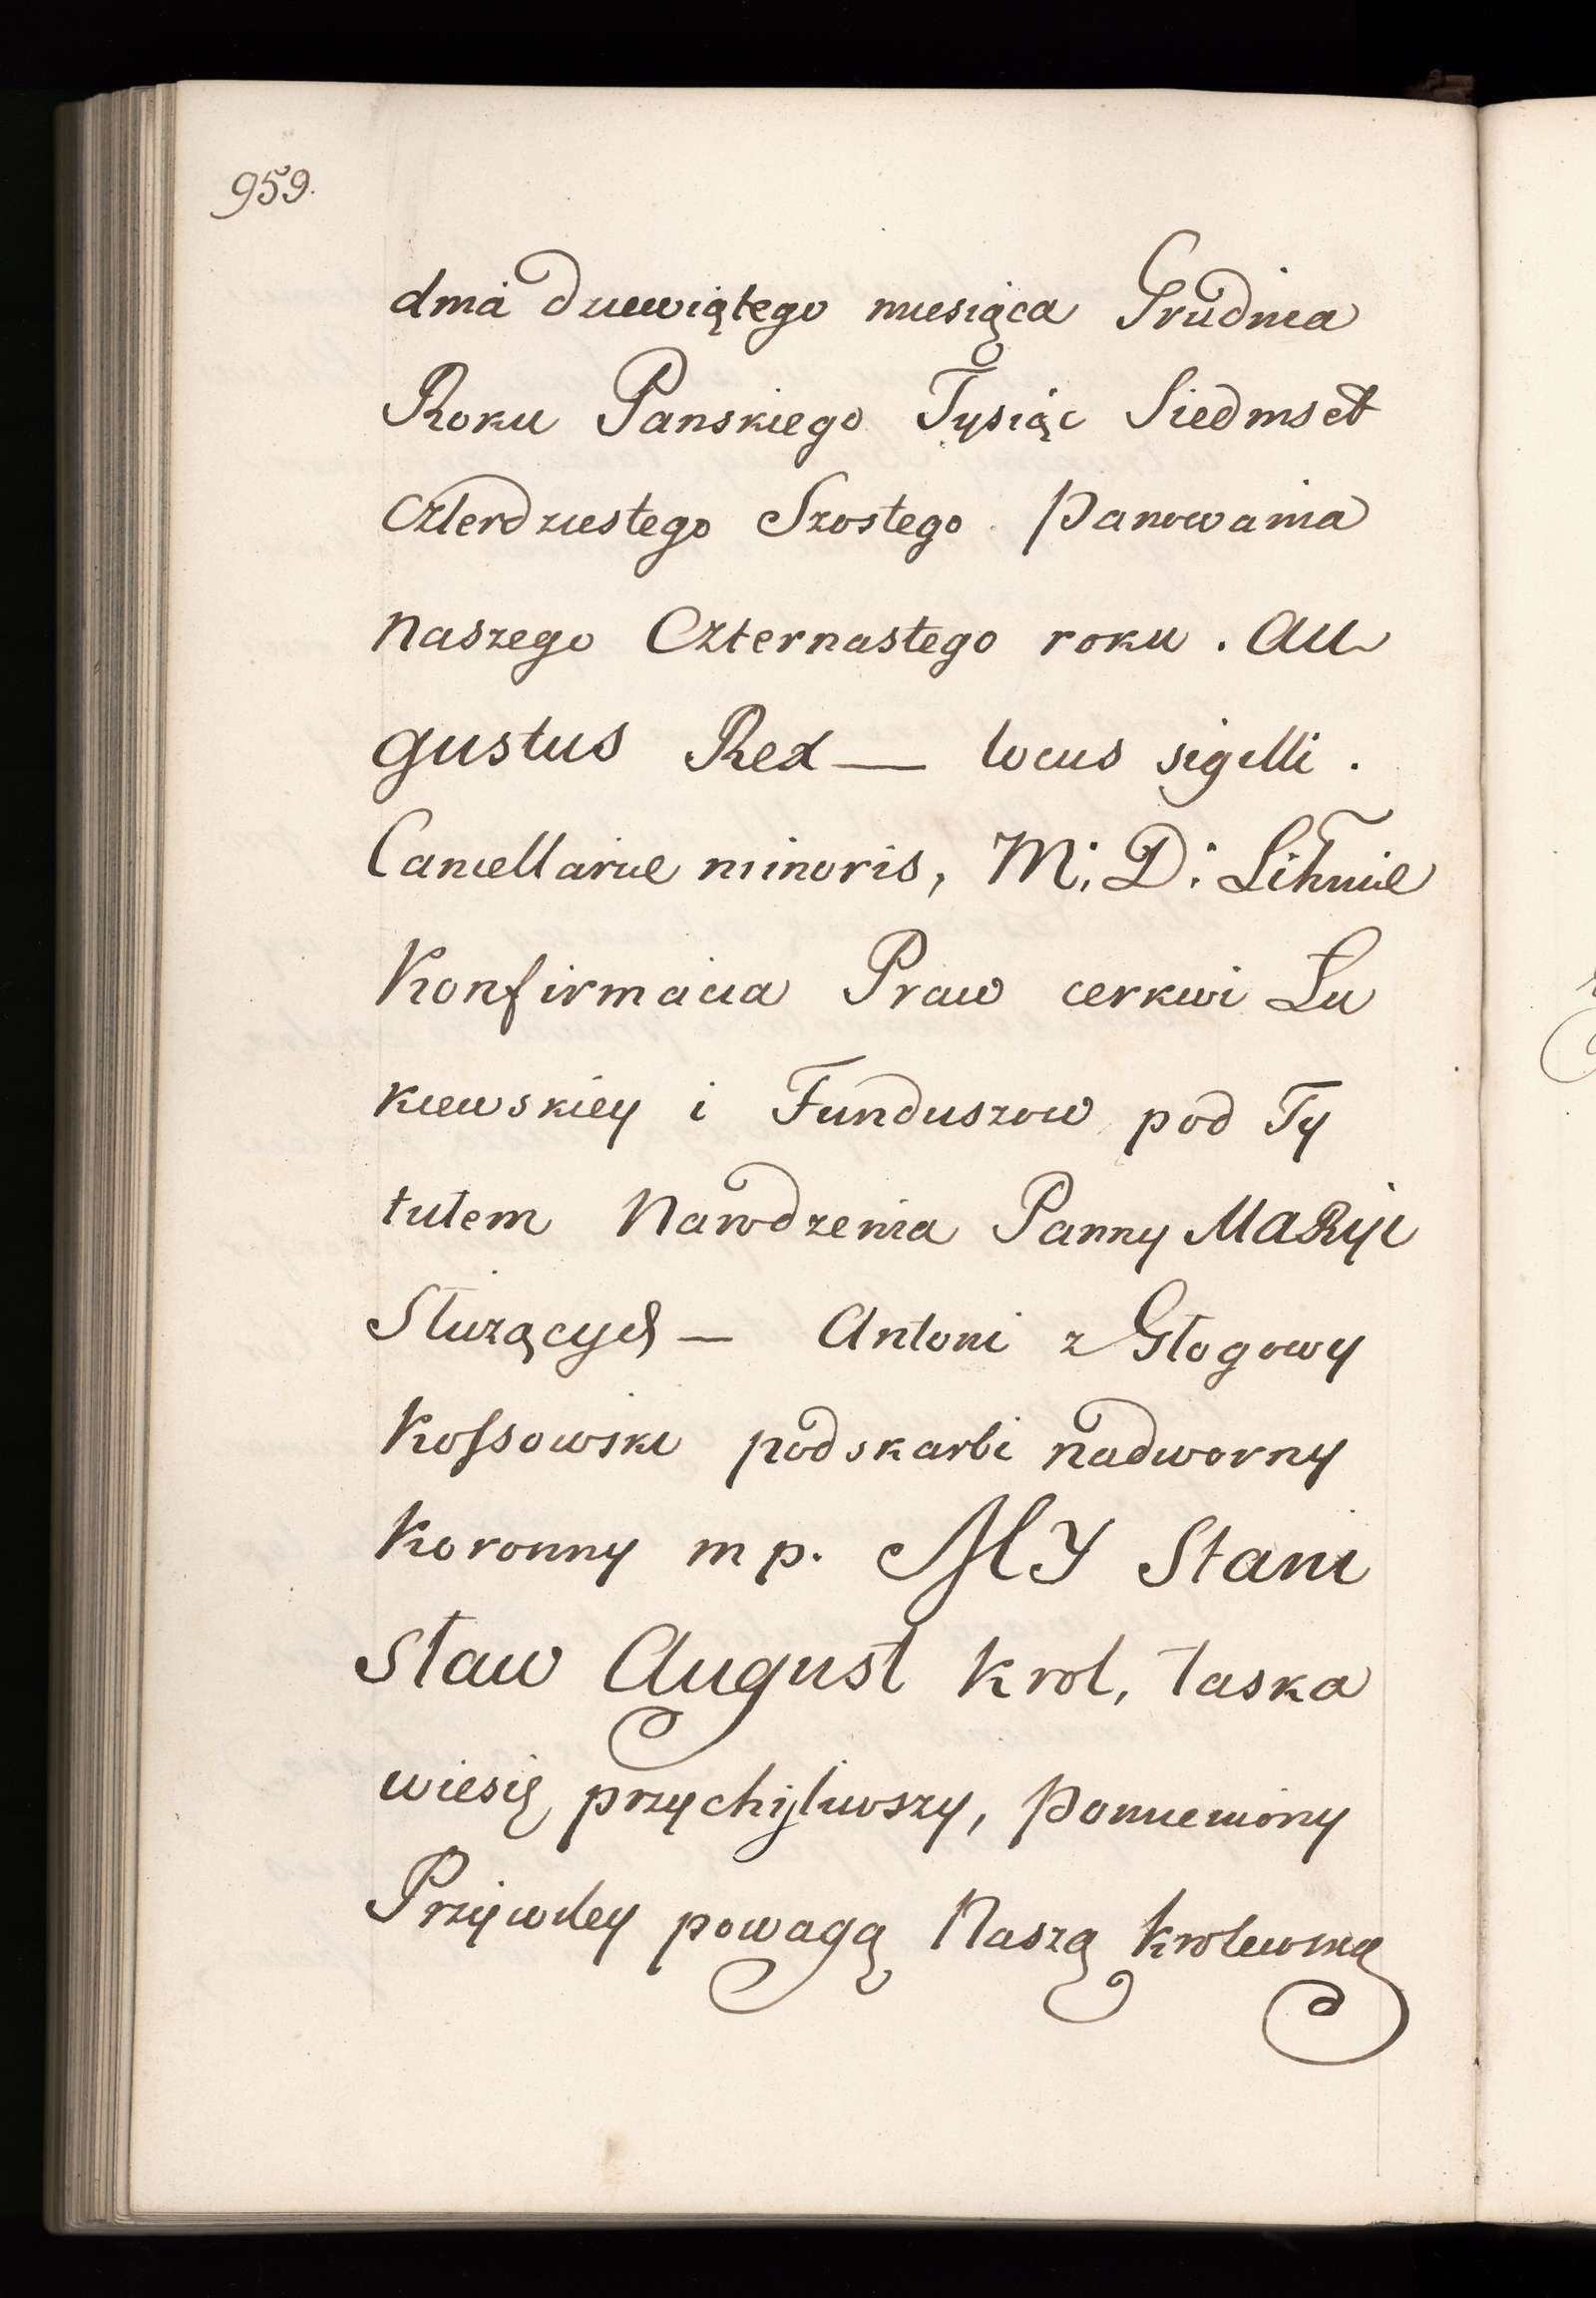 959.
dnia dziewiątego miesiąca Grudnia
Roku Panskiego Tysiąc Siedmset
czterdziestego Szostego. Panowania
naszego Czternastego roku. Au
gustus Rex — locus sigilli.
Cancellariae minoris, M: D: Lithniae
Konfirmacia Praw cerkwi Łu
kiewskiey i Funduszow pod Ty
tułem Narodzenia Panny MARYi
Służących — Antoni z Głogowy
Kossowski podskarbi nadworny
Koronny mp. MY Stani
sław August Krol, łaska
wiesię przychijliwszy, Pomieniony
Przywiley powagą Naszą krolewską